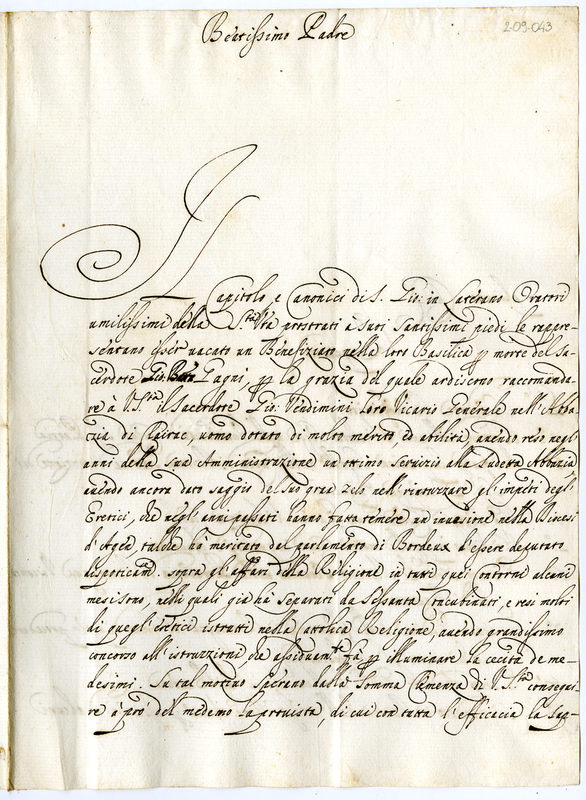 Beatissimo Padre
2-09-043
Il
Capitolo e Canonici di S. Gio: in Laterano Oratori
umilissimi della S.tà V̄ra prostrati à suoi Santissimi piedi le rappre-
sentano esser uacato un Benefiziato nella loro Basilica p morte del Sa-
cerdote Gio: Pagni, p la grazia del quale ardiscono raccomanda-
re à V. S.tà il Sacerdote Gio: Vendimini loro Vicario Generale nell'Abba-
zia di Clairac, uomo dotato di molto merito ed abilità, auendo reso negl'
anni della sua Amministrazione un ottimo seruizio alla sudetta Abbazia
auendo ancora dato saggio del suo gran zelo nell' rintuzzare gl'impeti degl'
Eretici, che negl'anni passati hanno fatto temere un inuasione nella Diocesi
d'Agen, talche hà meritato dal parlamento di Bordeux d'essere deputato
dispoticam.te sopra gl'affari della Religione in tutti quei contorni alcuni
mesi sono, nelli quali già hà separati da sessanta concubinati, e resi molti
di quegl'eretici istrutti nella Cattolica Religione, auendo grandissimo
concorso all'istruzzioni che assiduam.te fà p illuminare la cecità de me-
desimi. Su tal motiuo sperano dalla somma Clemenza di V. S.tà consegui-
re à prò del medemo la prouista, di cui con tutta l'efficacia la sup-